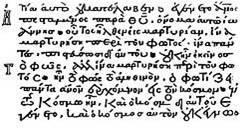 τία αὐτὸ οὐ κατέλαβεν· ἐγένετο ἄνος
ἀπεσταλμένος παρὰ θυ· ὄνομα αὐτῷ ἰω
άννης· οὗτος ἦλθεν εἰς μαρτυρίαν, ἵνα
μαρτυρήσῃ περὶ τοῦ φωτός· ἵνα πάν
τες πιστεύσωσι δι' αὐτοῦ· οὐκ ἦν ἐκεῖνος
τὸ φῶς, ἀλλ' ἵνα μαρτυρήσῃ περὶ τοῦ φω
τός· ἦν τὸ φῶς τὸ ἀληθινόν· ὃ φωτίζει
πάντα ἄνον ἐρχόμενον εἰς τὸν κόσμον· ἐν
τῷ κόσμῳ ἦν, καὶ ὁ κόσμος δι' αὐτοῦ ἐγέ
νετο, καὶ ὁ κόσμος αὐτὸν οὐκ ἔγνω